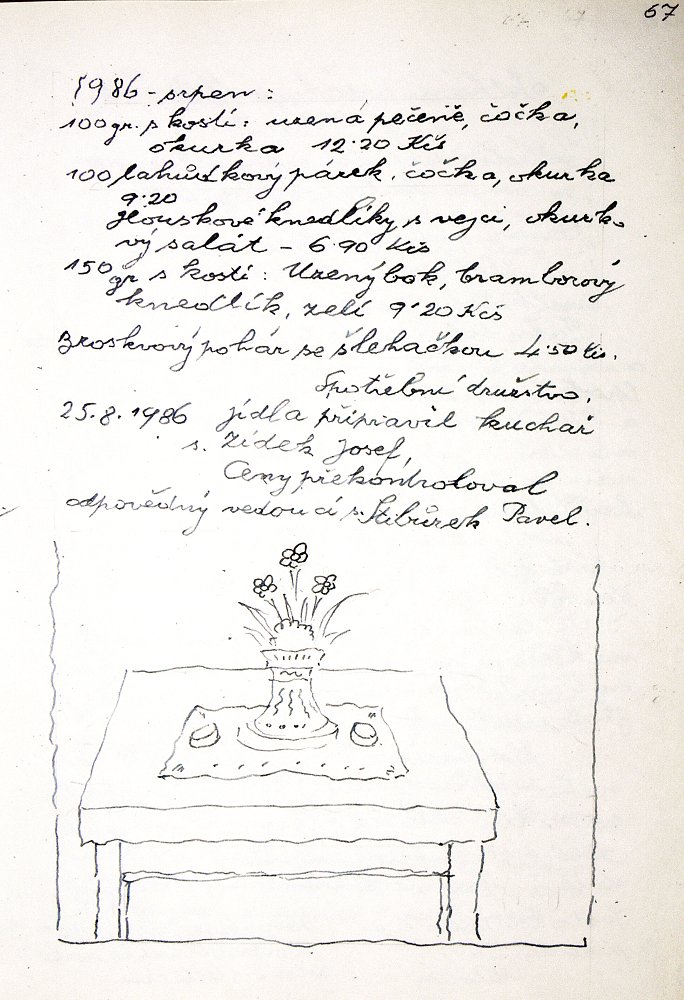 67
1986 - srpen :
100 gr. s kostí : uzená pečeně, čočka,
okurka 12·20 Kčs
100 lahůdkový párek, čočka, okurka
9·20
Houskové knedlíky s vejci, okurko
vý salát - 6·90 Kčs
150 gr s kostí : Uzený bok, bramborový
knedlík, zelí 9·20 Kčs
Broskvový pohár se šlehačkou 4·50 Kčs.
Spotřební družstvo.
25.8.1986 jídla připravil kuchař
s. Zídek Josef,
Ceny překontroloval
odpovědný vedoucí s. Stibůrek Pavel.